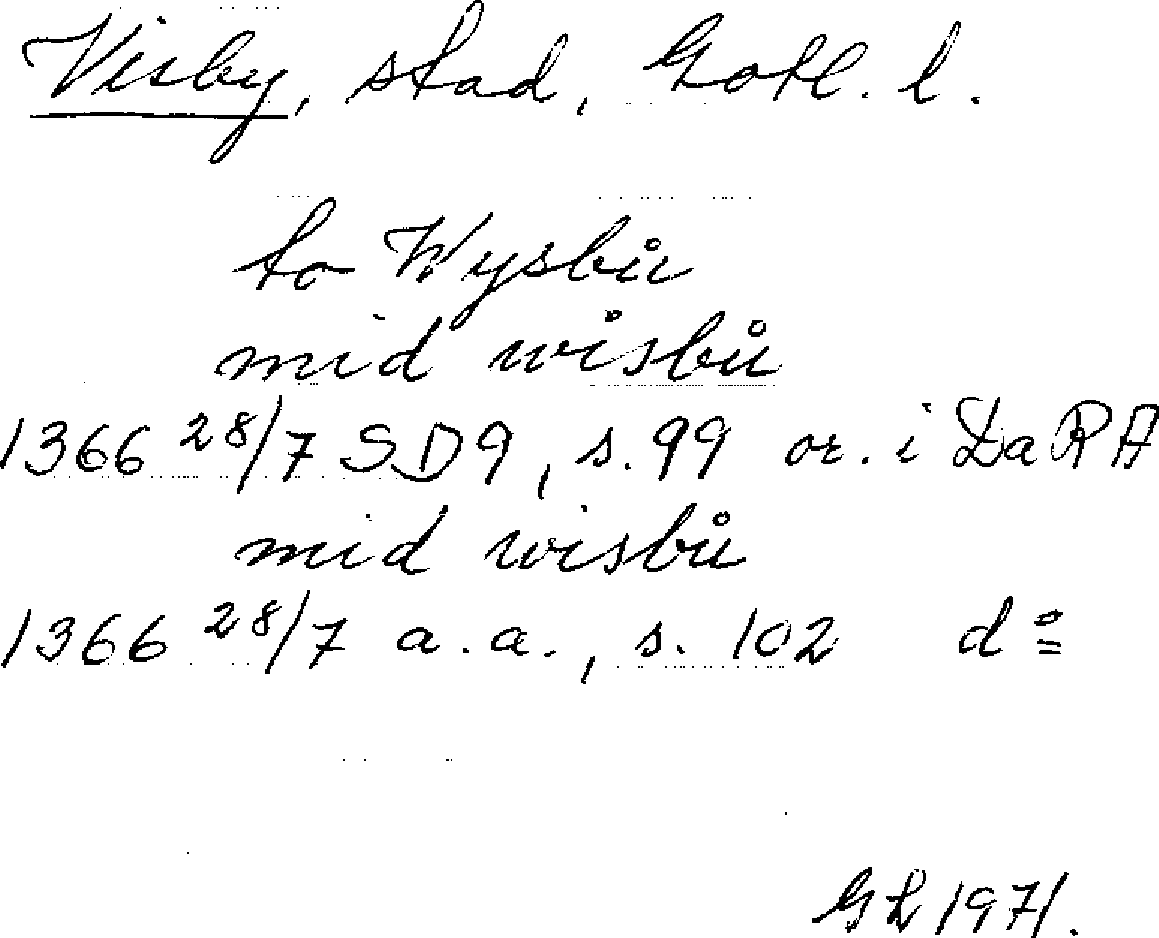 Visby, stad, Gotl. l.
to Wysbů
mid wisbů
1366 28/7 SD9, s. 99 or. i DaRA
mid wisbů
1366 28/7 a.a., s. 102 dº
GL 1971.